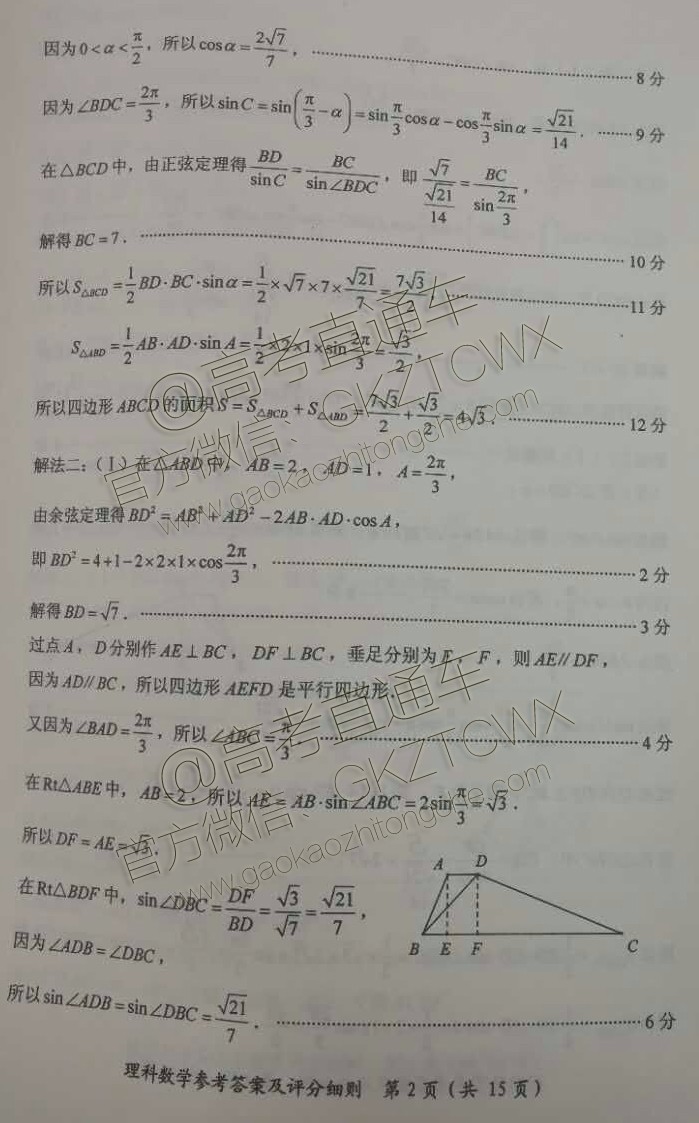 因为0<α<π/2，所以cosα=2√7/7，……8分
因为∠BDC=2π/3，所以sinC=sin(π/3-α)=sin π/3 cosα-cos π/3 sinα=√21/14．……9分
在△BCD中，由正弦定理得BD/sinC=BC/sin∠BDC，即√7/(√21/14)=BC/(sin 2π/3)，
解得BC=7．……10分
所以S△BCD=1/2 BD·BC·sinα=1/2×√7×7×√21/7=7√3/2，……11分
S△ABD=1/2 AB·AD·sin A=1/2×2×1×sin 2π/3=√3/2，
所以四边形ABCD的面积S=S△BCD+S△ABD=7√3/2+√3/2=4√3．……12分
解法二：(Ⅰ)在△ABD中，AB=2，AD=1，A=2π/3，
由余弦定理得BD²=AB²+AD²-2AB·AD·cosA，
即BD²=4+1-2×2×1×cos 2π/3，……2分
解得BD=√7．……3分
过点A，D分别作AE⊥BC，DF⊥BC，垂足分别为E，F，则AE//DF，
因为AD//BC，所以四边形AEFD是平行四边形．
又因为∠BAD=2π/3，所以∠ABC=π/3．……4分
在Rt△ABE中，AB=2，所以AE=AB·sin∠ABC=2sin π/3=√3．
所以DF=AE=√3．
在Rt△BDF中，sin∠DBC=DF/BD=√3/√7=√21/7，
因为∠ADB=∠DBC，
所以sin∠ADB=sin∠DBC=√21/7．……6分
A D
B E F C
理科数学参考答案及评分细则 第2页(共 15页)
@高考直通车
官方微信：GKZTCWX
www.gaokaozhitongche.com
@高考直通车
官方微信：GKZTCWX
www.gaokaozhitongche.com